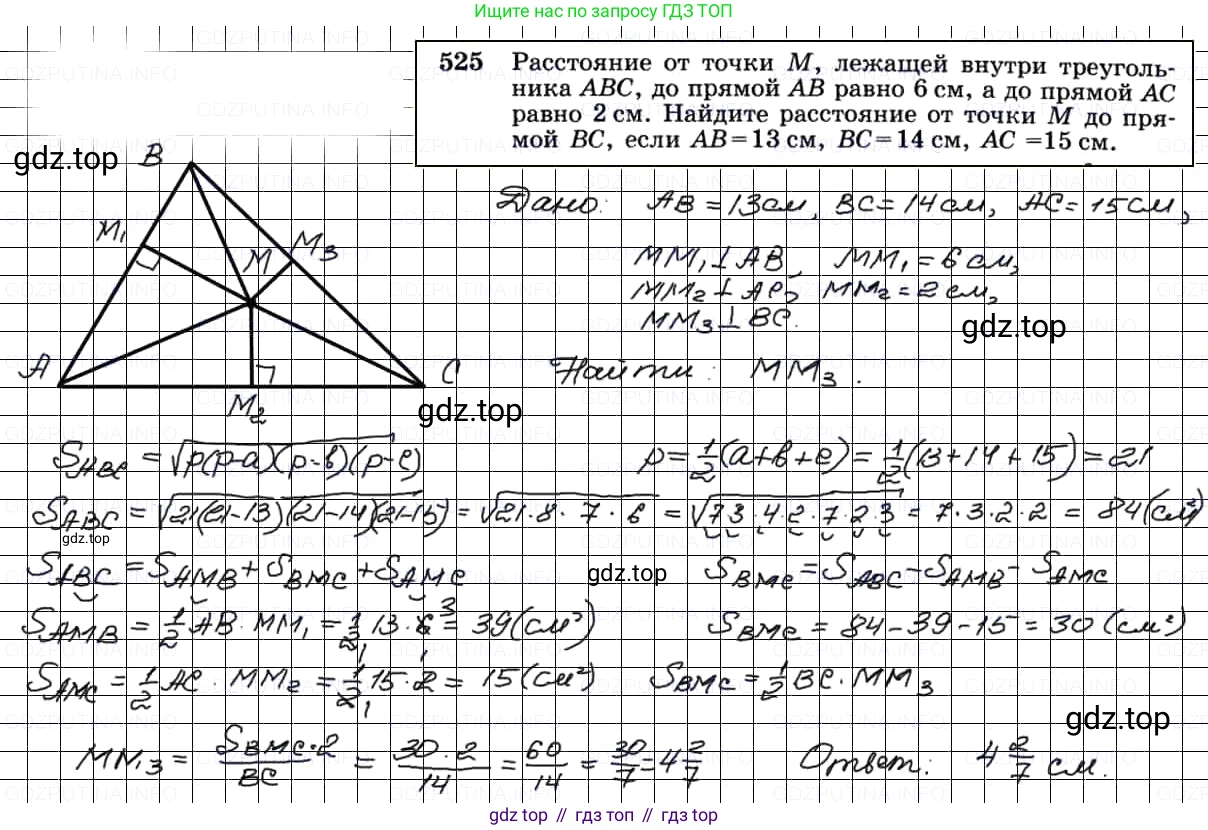 Ищите нас по запросу ГДЗ ТОП
525 Расстояние от точки M, лежащей внутри треуголь-
ника ABC, до прямой AB равно 6 см, а до прямой AC
равно 2 см. Найдите расстояние от точки M до пря-
мой BC, если AB=13 см, BC=14 см, AC =15 см.
gdz.top
B
M₁
M
M₃
A
C
M₂
gdz.top
Дано: AB = 13 см, BC = 14 см, AC = 15 см,
MM₁ ⊥ AB, MM₁ = 6 см,
MM₂ ⊥ AC, MM₂ = 2 см,
MM₃ ⊥ BC.
gdz.top
Найти: MM₃.
S_ABC = √p(p-a)(p-b)(p-c) p = 1/2(a+b+c) = 1/2(13+14+15) = 21
S_ABC = √21(21-13)(21-14)(21-15) = √21·8·7·6 = √7·3·4·2·7·2·3 = 7·3·2·2 = 84(см²)
gdz.top
S_ABC = S_AMB + S_BMC + S_AMC S_BMC = S_ABC - S_AMB - S_AMC
gdz.top
S_AMB = 1/2 AB · MM₁ = 1/2 13·6 = 39(см²) S_BMC = 84-39-15 = 30 (см²)
S_AMC = 1/2 AC · MM₂ = 1/2 15·2 = 15(см²) S_BMC = 1/2 BC · MM₃
gdz.top
MM₃ = S_BMC·2/BC = 30·2/14 = 60/14 = 30/7 = 4 2/7 Ответ: 4 2/7 см.
gdz top // гдз топ // gdz top